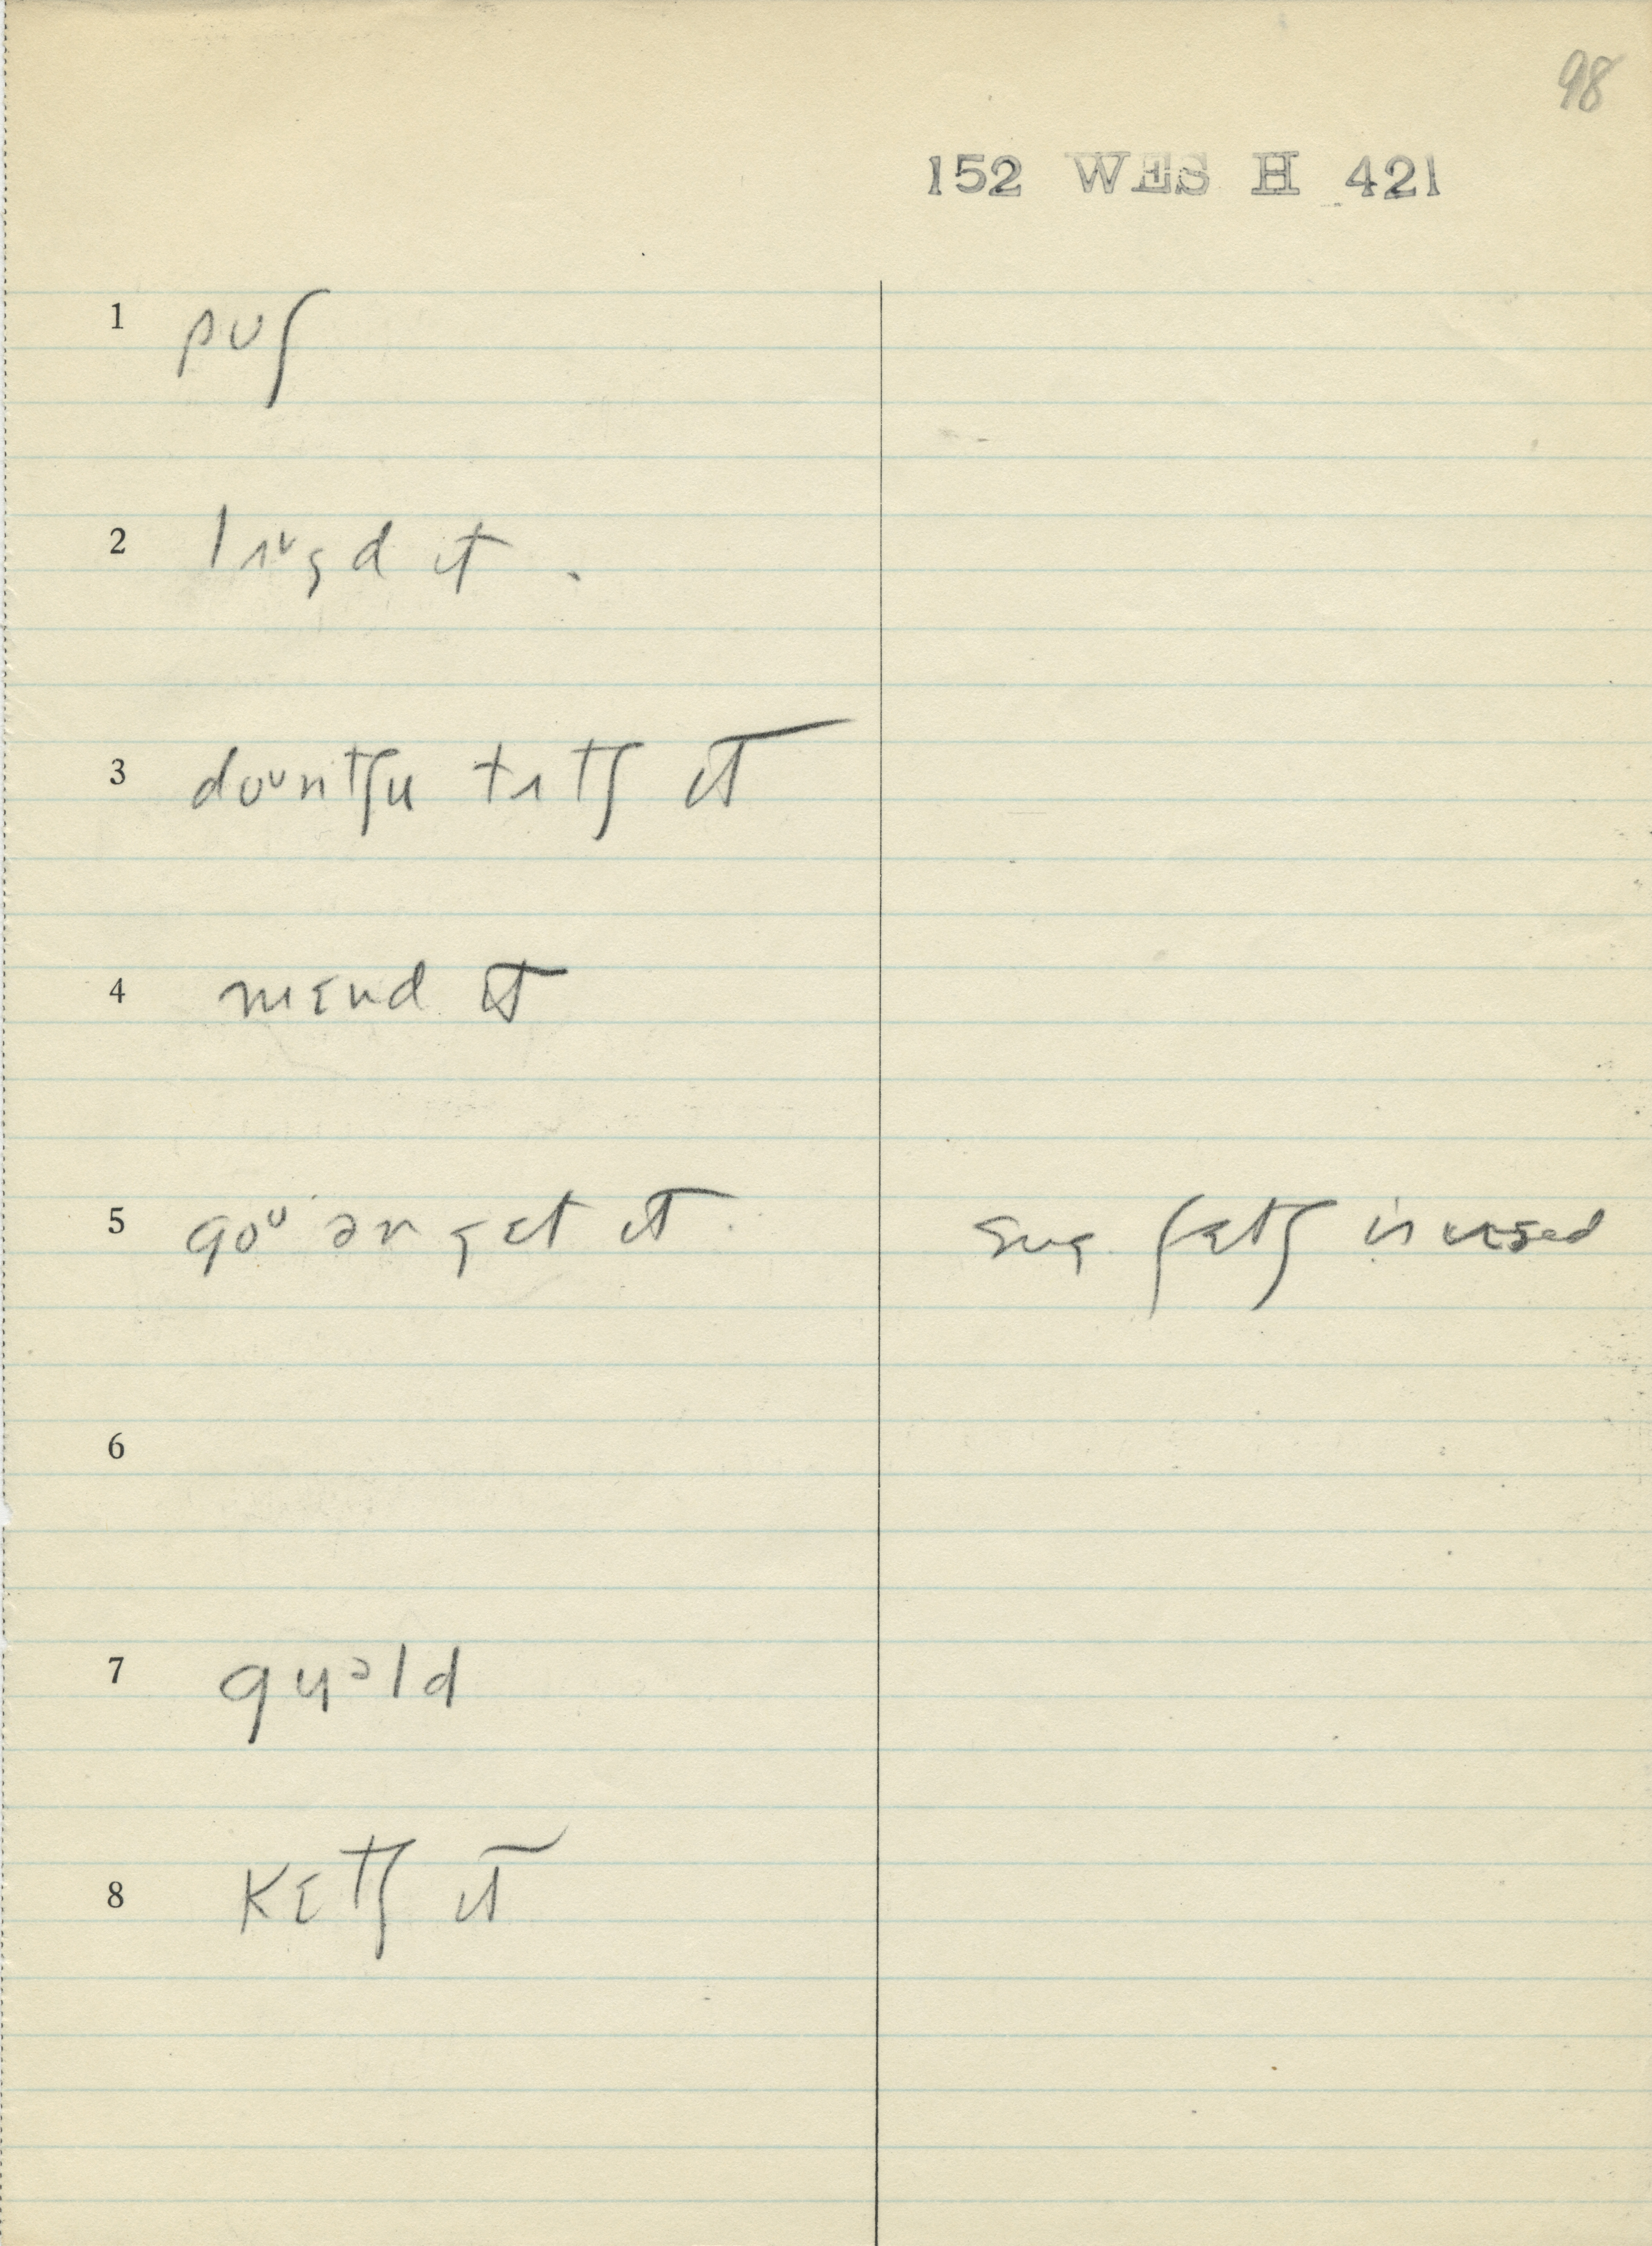 98
152 WES H 421
1 pʊʃ
2 lɜᶷʒd ɪt
3 doᶷntʃu tʌtʃ ɪt
4 mɛnd ɪt
5 goᶷ ən gɛt ɪt sug. fɛtʃ is used
6
7 gɥəld
8 kɛtʃ ɪt